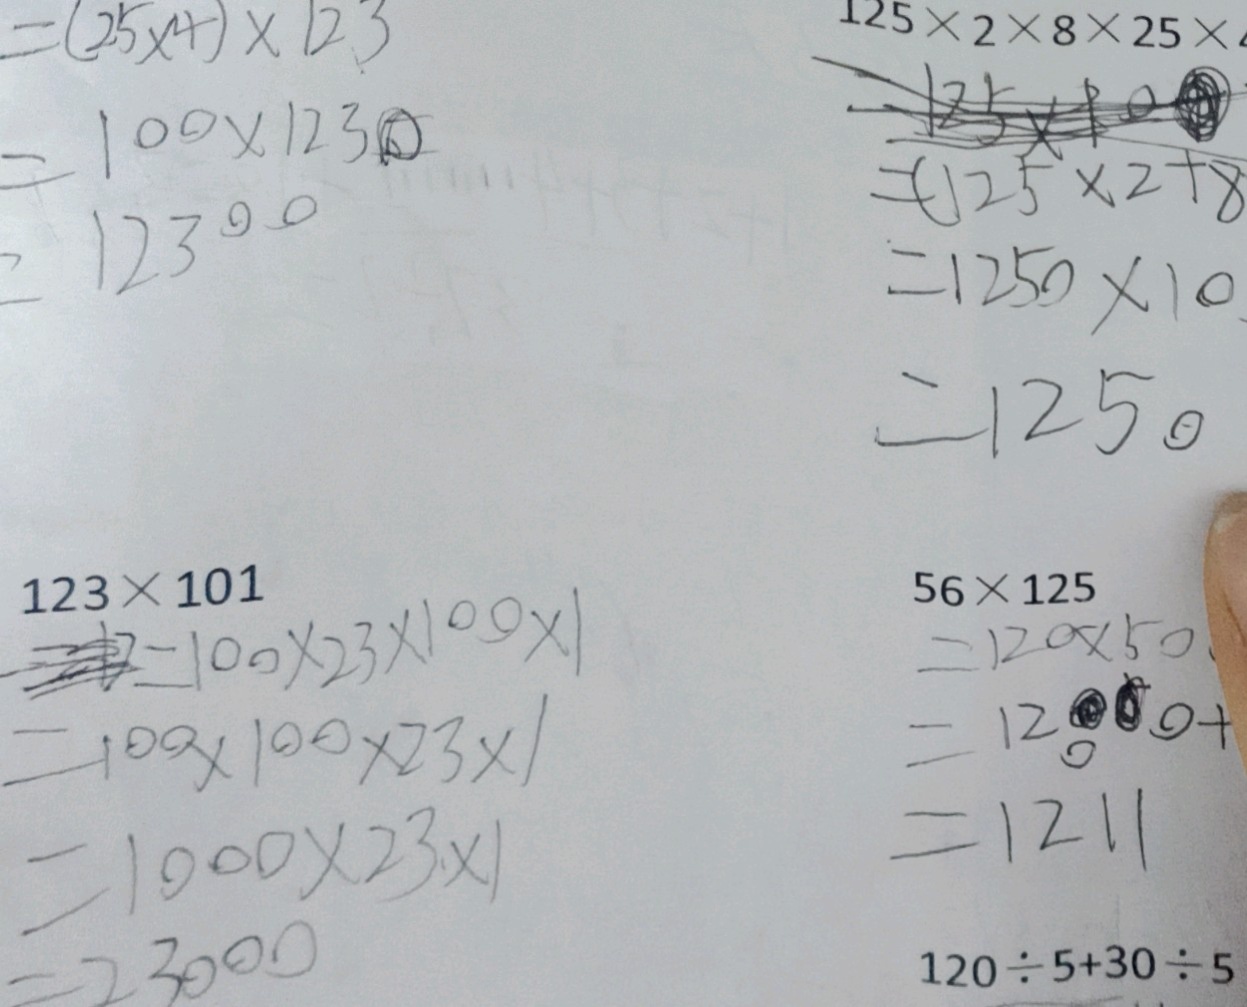 =(25×4)×123
=100×1230
=12300
125×2×8×25×
=(125×2+8
=1250×10
=1250
123×101
=100×23×100×1
=100×100×23×1
=1000×23×1
=23000
56×125
=120×50
=1200+
=1211
120÷5+30÷5